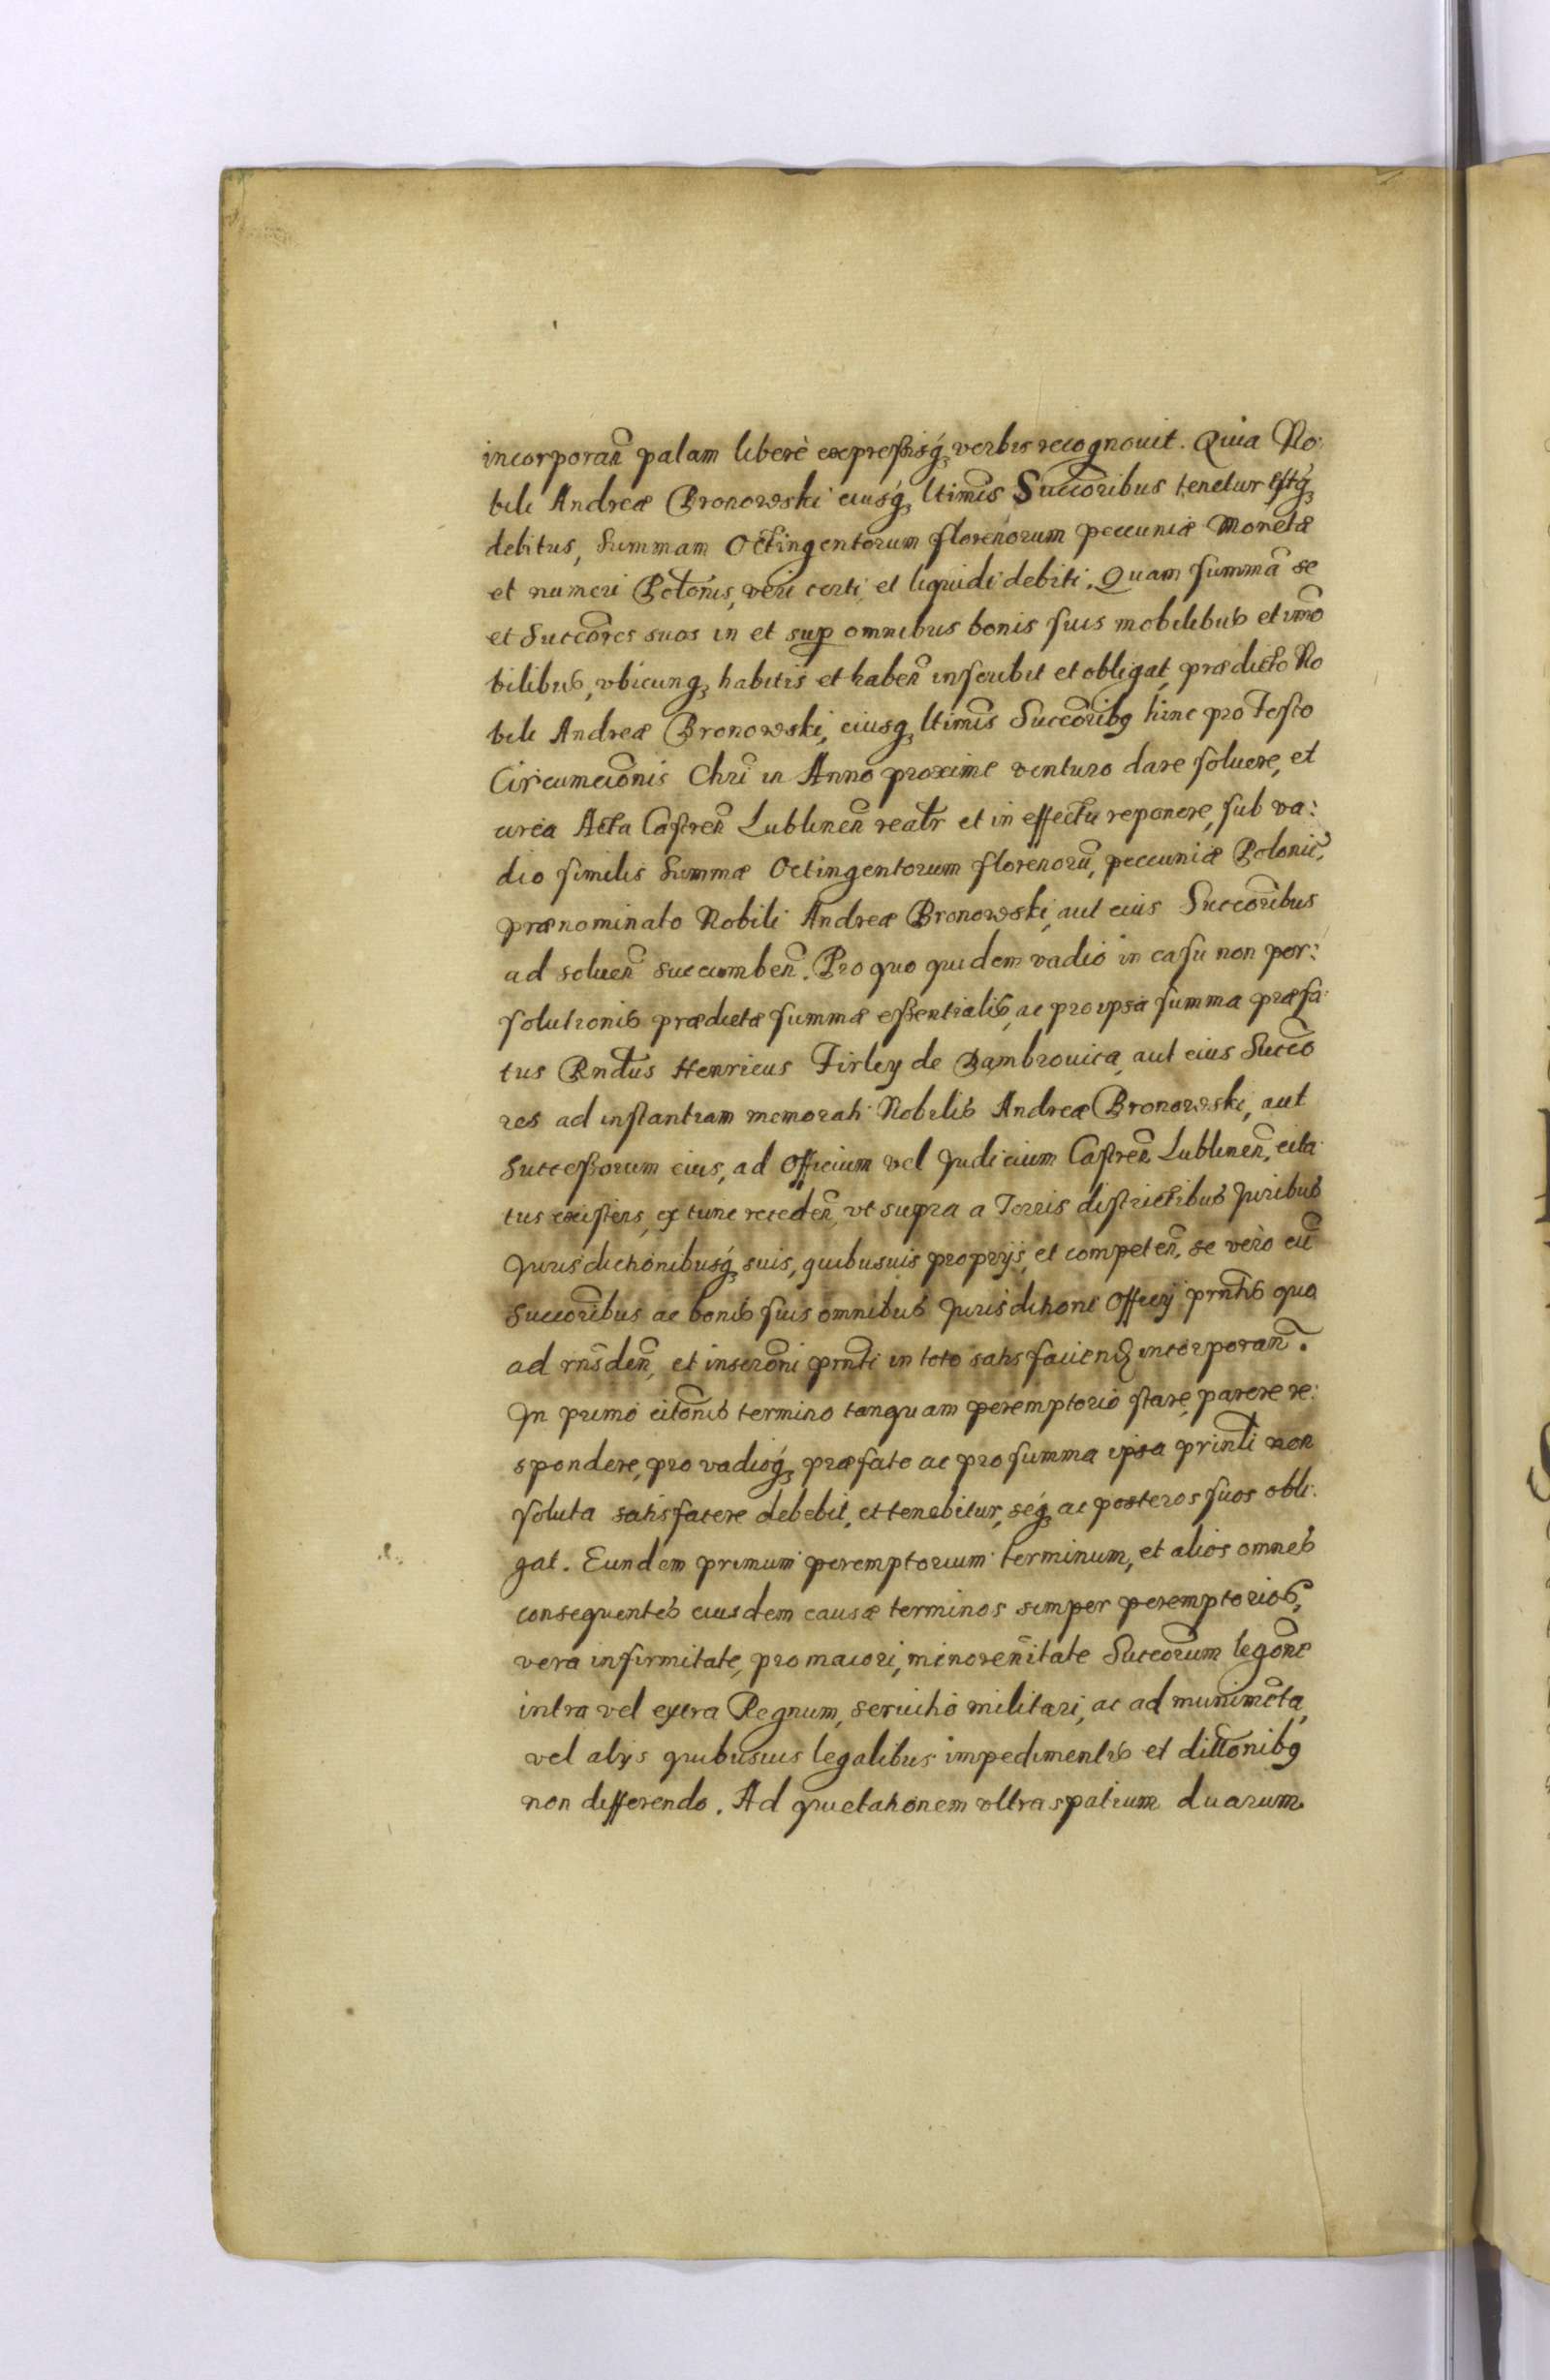 incorporañ palam liberè expressisq₃ verbis recognouit. Quia No:
bili Andreæ Bronowski eiusq₃ ltimis Succoribus tenetur estq₃
debitus, Summam Octingentorum florenorum peccuniæ Monetæ
et numeri Polonis, veri certi et liquidi debiti. Quam summã se
et Succores suos in et sup omnibus bonis suis mobilibus et im̃o
bilibus, vbicunq₃ habitis et habeñ inscribit et obligat, prædicto No
bili Andreæ Bronowski, eiusq₃ ltimis Succoribq hinc pro Festo
Circumcionis Chri in Anno proxime venturo dare soluere, et
circa Acta Castreñ Lublineñ realr et in effectu reponere, sub va:
dio similis Summæ Octingentorum florenorũ, peccuniæ Polonic̃,
prænominato Nobili Andreæ Bronowski, aut eius Succoribus
ad solueñ succumbeñ. Pro quo quidem vadio in casu non per:
solutionis prædictæ summæ essentialis, ac pro ipsa summa præfa:
tus Rndus Henricus Firley de Dambrouica, aut eius Succo
res ad instantiam memorati Nobilis Andreæ Bronowski, aut
Successorum eius, ad Officium vel Judicium Castreñ Lublineñ, cita
tus existens, ex tunc recedeñ, vt supra a Terris districtibus Juribus
Jurisdictionibusq₃ suis, quibusuis proprijs, et competeñ, se vèro cũ
Succoribus ac bonis suis omnibus Jurisditione Officij prntis quo
ad rnsdeñ, et inscroni prnti in toto satisfaciend incorporañ.
In primo citonis termino tanquam peremptorio stare, parere re:
spondere, pro vadioq₃ præfato ac pro summa ipsa prinli non
soluta satisfacere debebit, et tenebitur, seq₃ ac posteros suos obli:
gat. Eundem primum peremptorium terminum, et alios omnes
consequentes eiusdem causæ terminos semper peremptorios,
vera infirmitate, pro maiori, minoreñitate Succorum legone
intra vel extra Regnum, seruitio militari, ac ad munimeta,
vel alijs quibusuis legalibus impedimentis et dillonibq
non differendo. Ad quietationem vltra spatium duarum